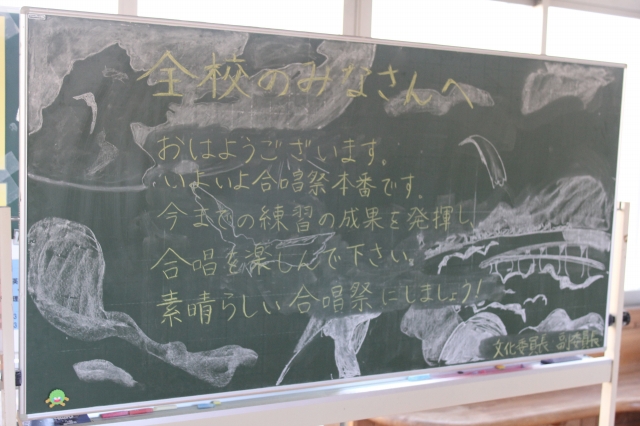 全校のみなさんへ
おはようございます。
いよいよ合唱祭本番です。
今までの練習の成果を発揮し、
合唱を楽しんで下さい。
素晴らしい合唱祭にしましょう!
文化委員長 副委員長